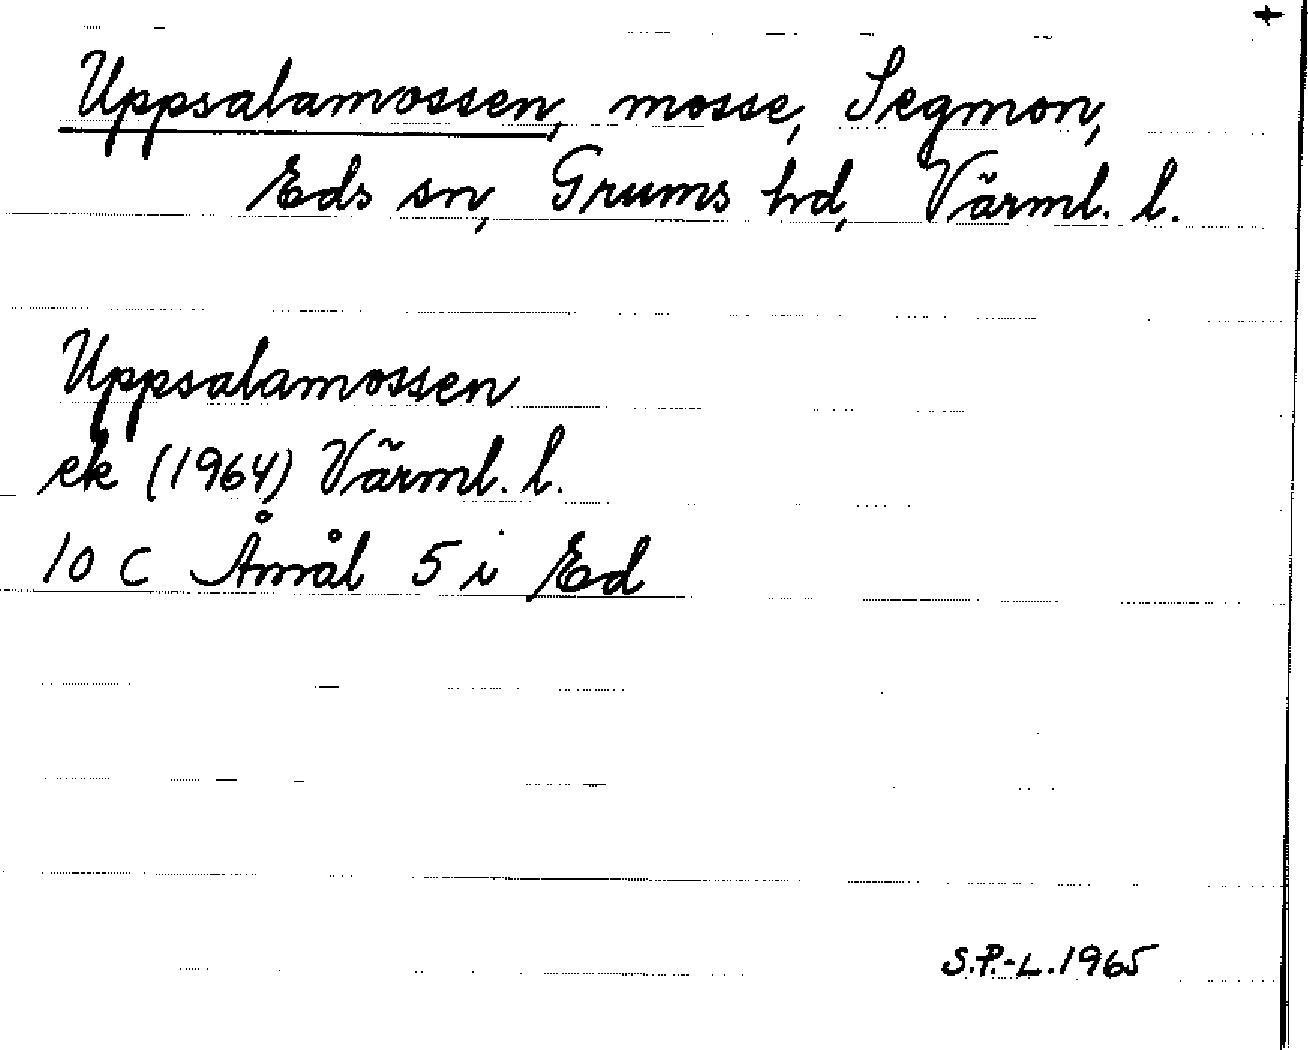 Uppsalamossen, mosse, Segmon,
Eds sn, Grums hd, Värml. l.
Uppsalamossen
ek (1964) Värml. l.
10 C Åmål 5 i Ed
S.P.-L. 1965